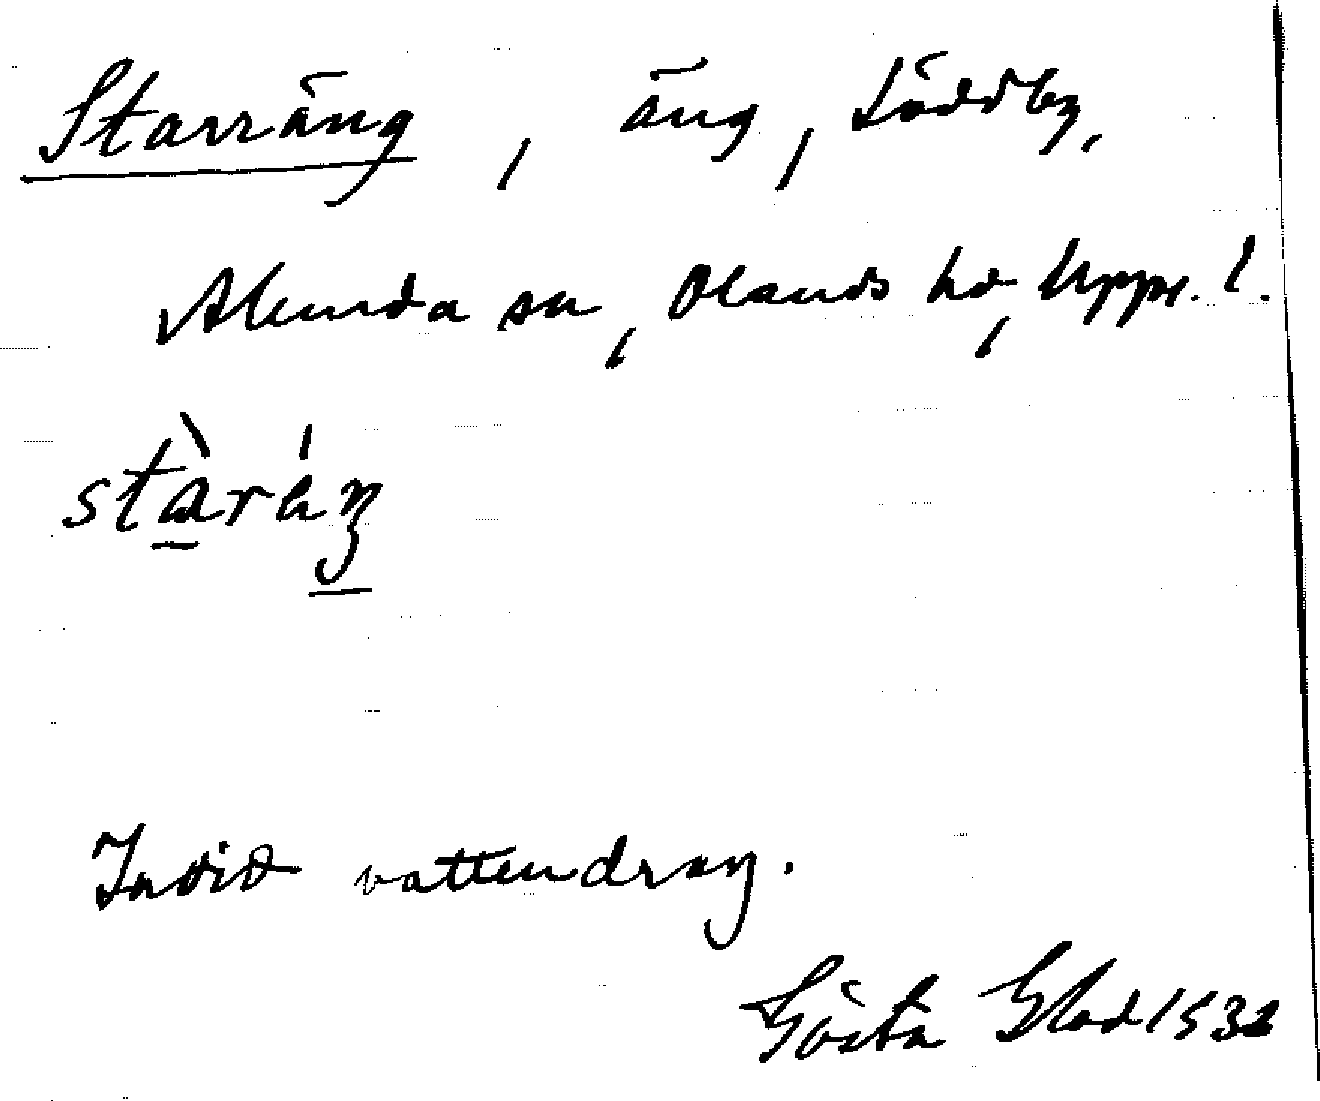 Starräng, äng, Löddby,
Alunda sn, Olands hd, Upps. l.
stàráŋ
Invid vattendrag.
Gösta Glad 1932